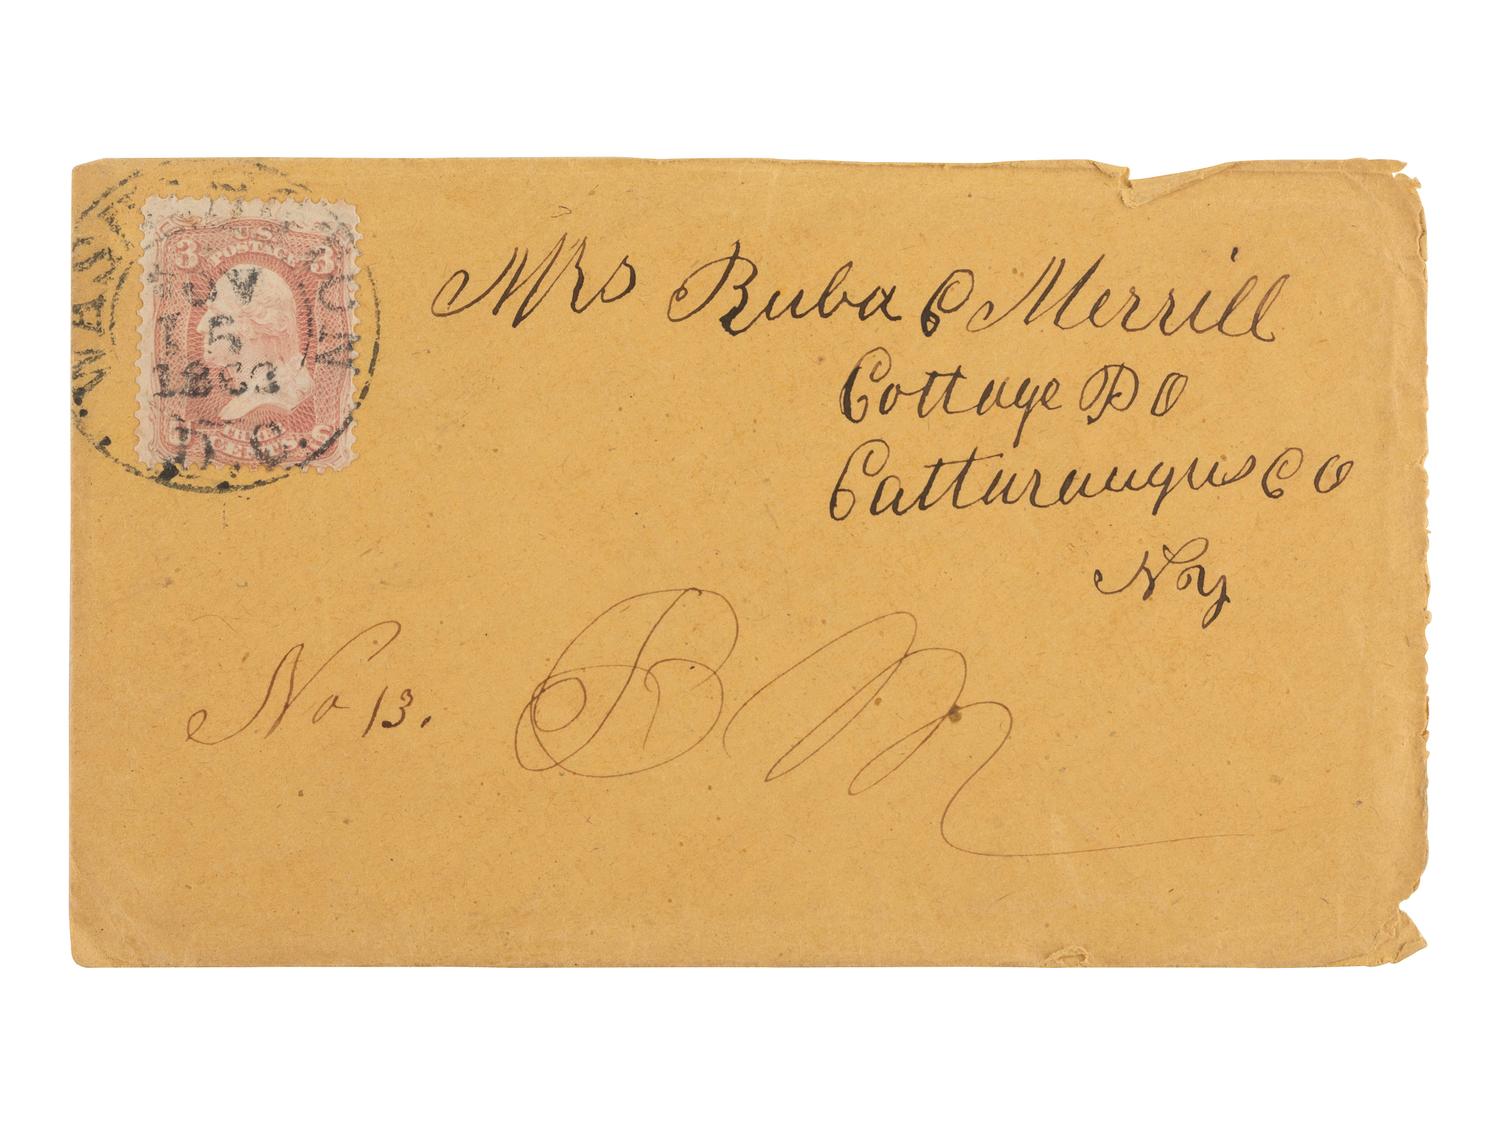 WASHINGTON.
D.C.
NOV
15
1863
U.S.
POSTAGE
3 3
THREE
CENTS
Mrs Ruba C Merrill
Cottage PO
Catturaugus CO
Ny
No 13.